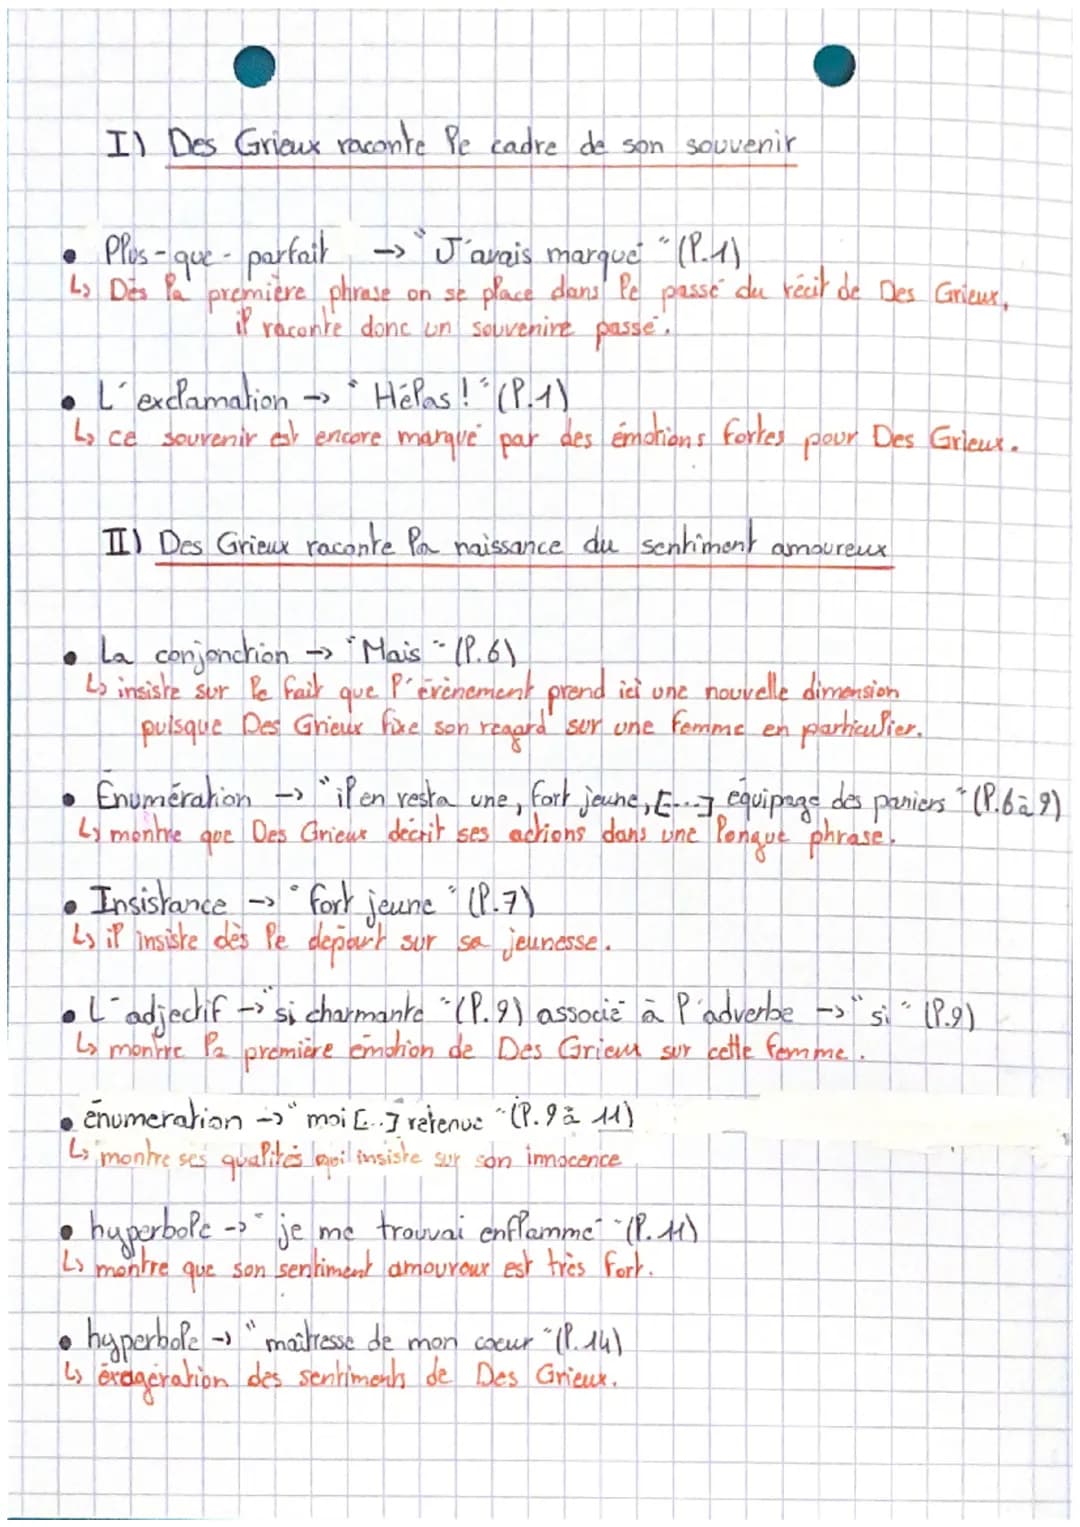 I) Des Grieux raconte le cadre de son souvenir
• Plus-que-parfait -> "J'avais marqué" (l.1)
↳ Dès la première phrase on se place dans le passé du récit de Des Grieux,
il raconte donc un souvenire passé.
• L'exclamation -> "Hélas !" (l.1)
↳ ce souvenir est encore marqué par des émotions fortes pour Des Grieux.
II) Des Grieux raconte la naissance du sentiment amoureux
• La conjonction -> "Mais" (l.6)
↳ insiste sur le fait que l'évènement prend ici une nouvelle dimension
puisque Des Grieux fixe son regard sur une femme en particulier.
• Énumération -> "il en resta une, fort jeune, [...] équipage des paniers" (l.6 à 9)
↳ montre que Des Grieux décrit ses actions dans une longue phrase.
• Insistance -> "fort jeune" (l.7)
↳ il insiste dès le départ sur sa jeunesse.
• L'adjectif -> "si charmante" (l.9) associé à l'adverbe -> "si" (l.9)
↳ montre la première émotion de Des Grieux sur cette femme.
• énumeration -> "moi [...] retenue" (l.9 à 11)
↳ montre ses qualités insiste sur son innocence
• hyperbole -> "je me trouvai enflammé" (l.11)
↳ montre que son sentiment amoureux est très fort.
• hyperbole -> "maîtresse de mon coeur" (l.14)
↳ éxagération des sentiments de Des Grieux.